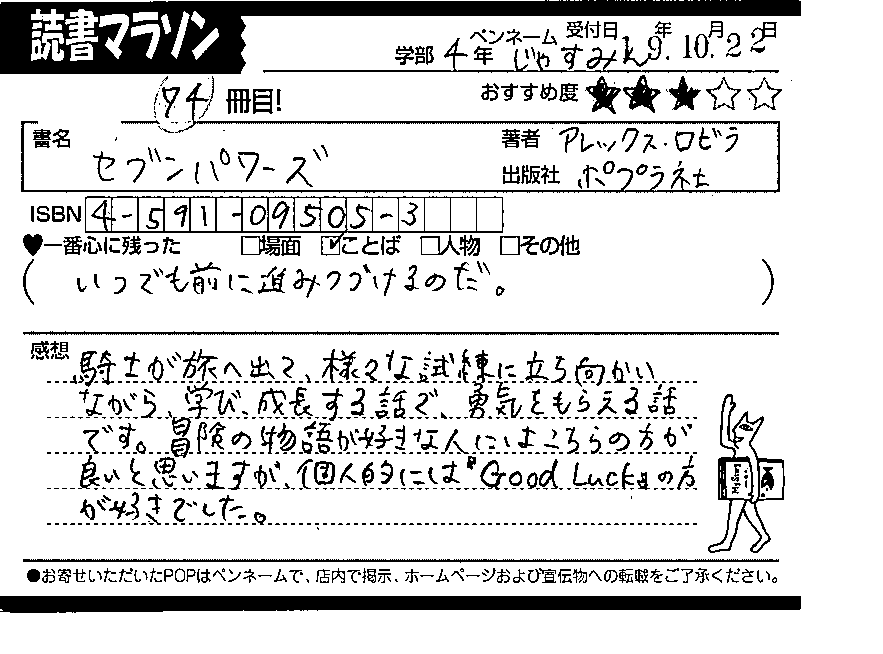 読書マラソン
学部 4年 ペンネーム じゃすみん 受付日 19年.10月.22日
74 冊目! おすすめ度 ★★★☆☆
書名 セブンパワーズ
著者 アレックス・ロビラ
出版社 ポプラ社
ISBN 4-591-09505-3
♥一番心に残った □場面 ☑ことば □人物 □その他
( いつでも前に進みつづけるのだ。 )
感想
騎士が旅へ出て、様々な試練に立ち向かい
ながら、学び、成長する話で、勇気をもらえる話
です。冒険の物語が好きな人にはこちらの方が
良いと思いますが、個人的には『Good Luck』の方
が好きでした。
●お寄せいただいたPOPはペンネームで、店内で掲示、ホームページおよび宣伝物への転載をご了承ください。